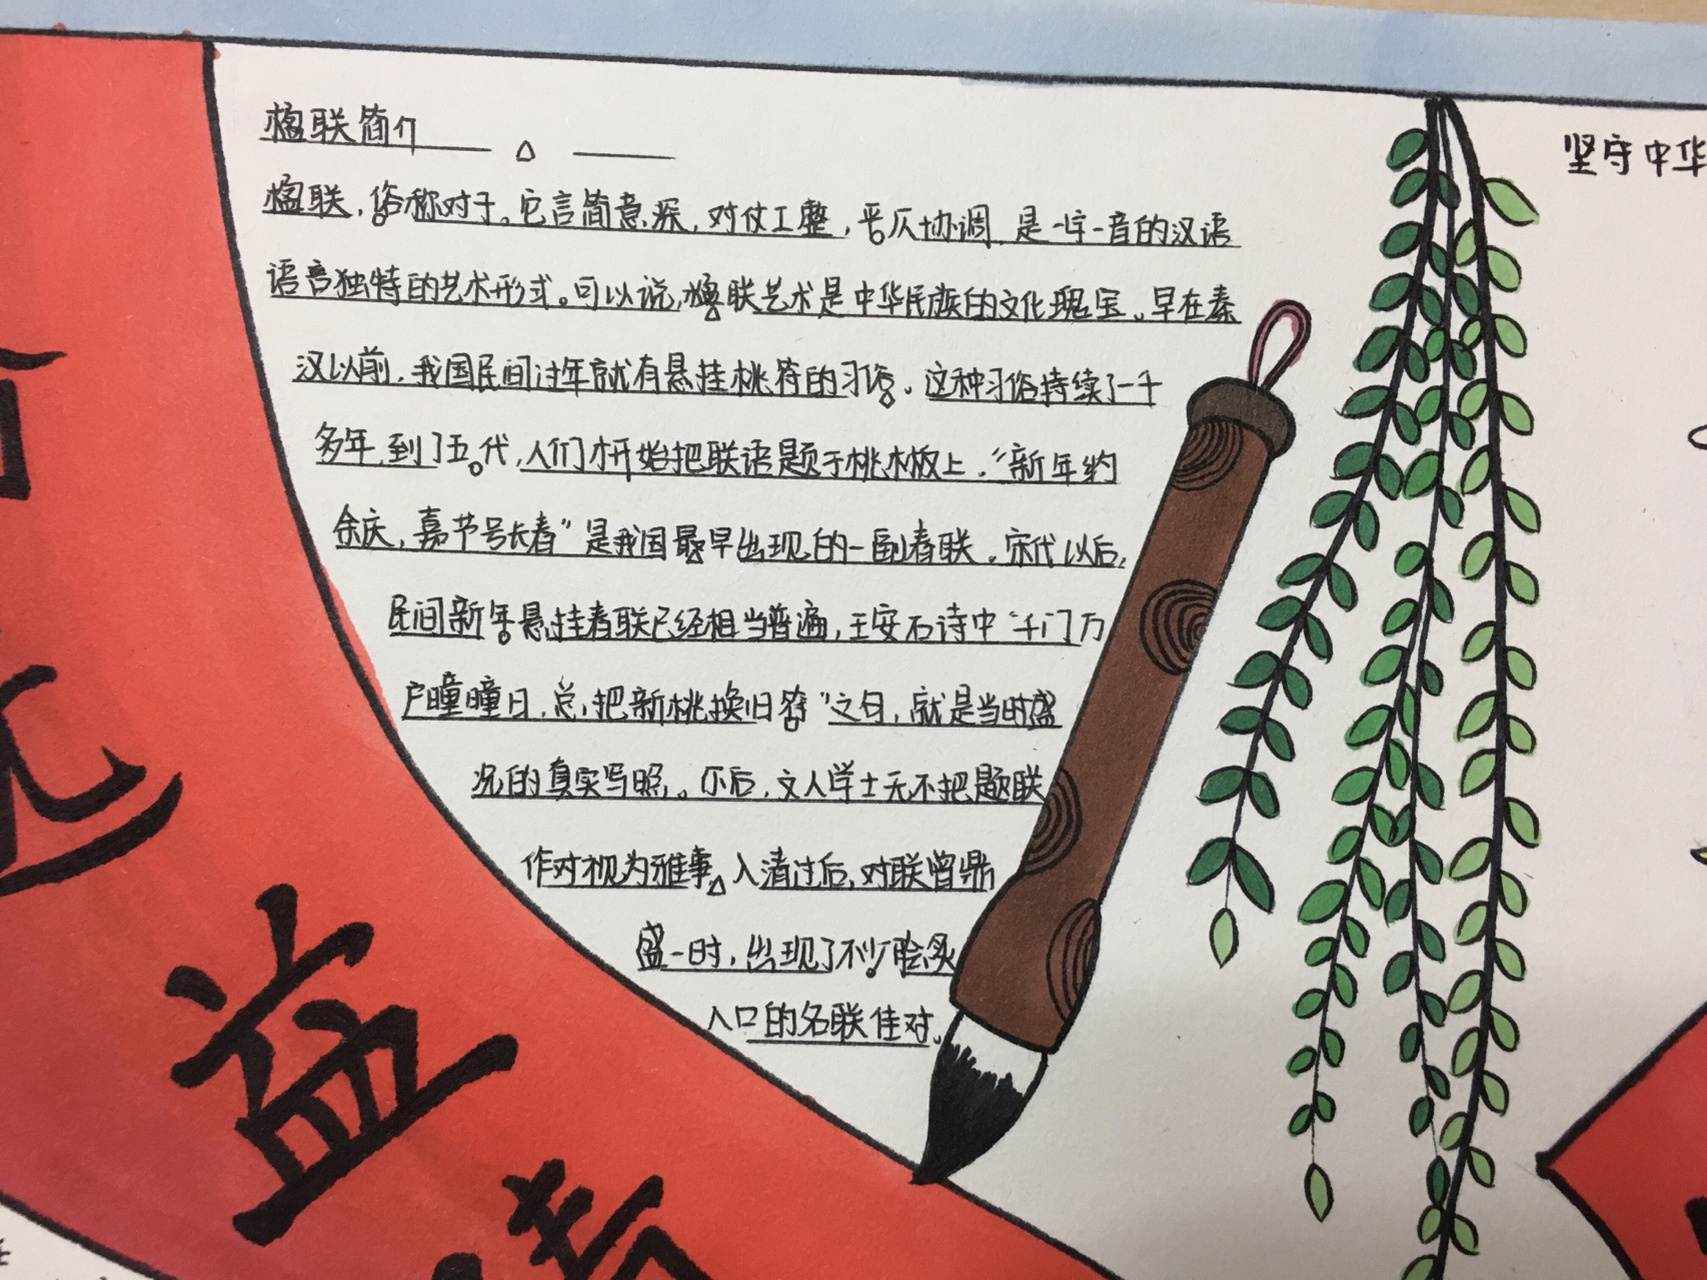 楹联简介
楹联，俗称对于。它言简意深，对仗工整，平仄协调，是一字一音的汉语
语言独特的艺术形式。可以说，楹联艺术是中华民族的文化瑰宝。早在秦
汉以前，我国民间过年就有悬挂桃符的习俗。这种习俗持续了一千
多年，到了五代，人们才开始把联语题于桃木板上。“新年纳
余庆，嘉节号长春”是我国最早出现的一副春联。宋代以后，
民间新年悬挂春联已经相当普遍，王安石诗中“千门万
户曈曈日，总把新桃换旧符”之句，就是当时盛
况的真实写照。尔后，文人学士无不把题联
作对视为雅事。入清过后，对联曾鼎
盛一时，出现了不少脍炙
人口的名联佳对。
坚守中华
益